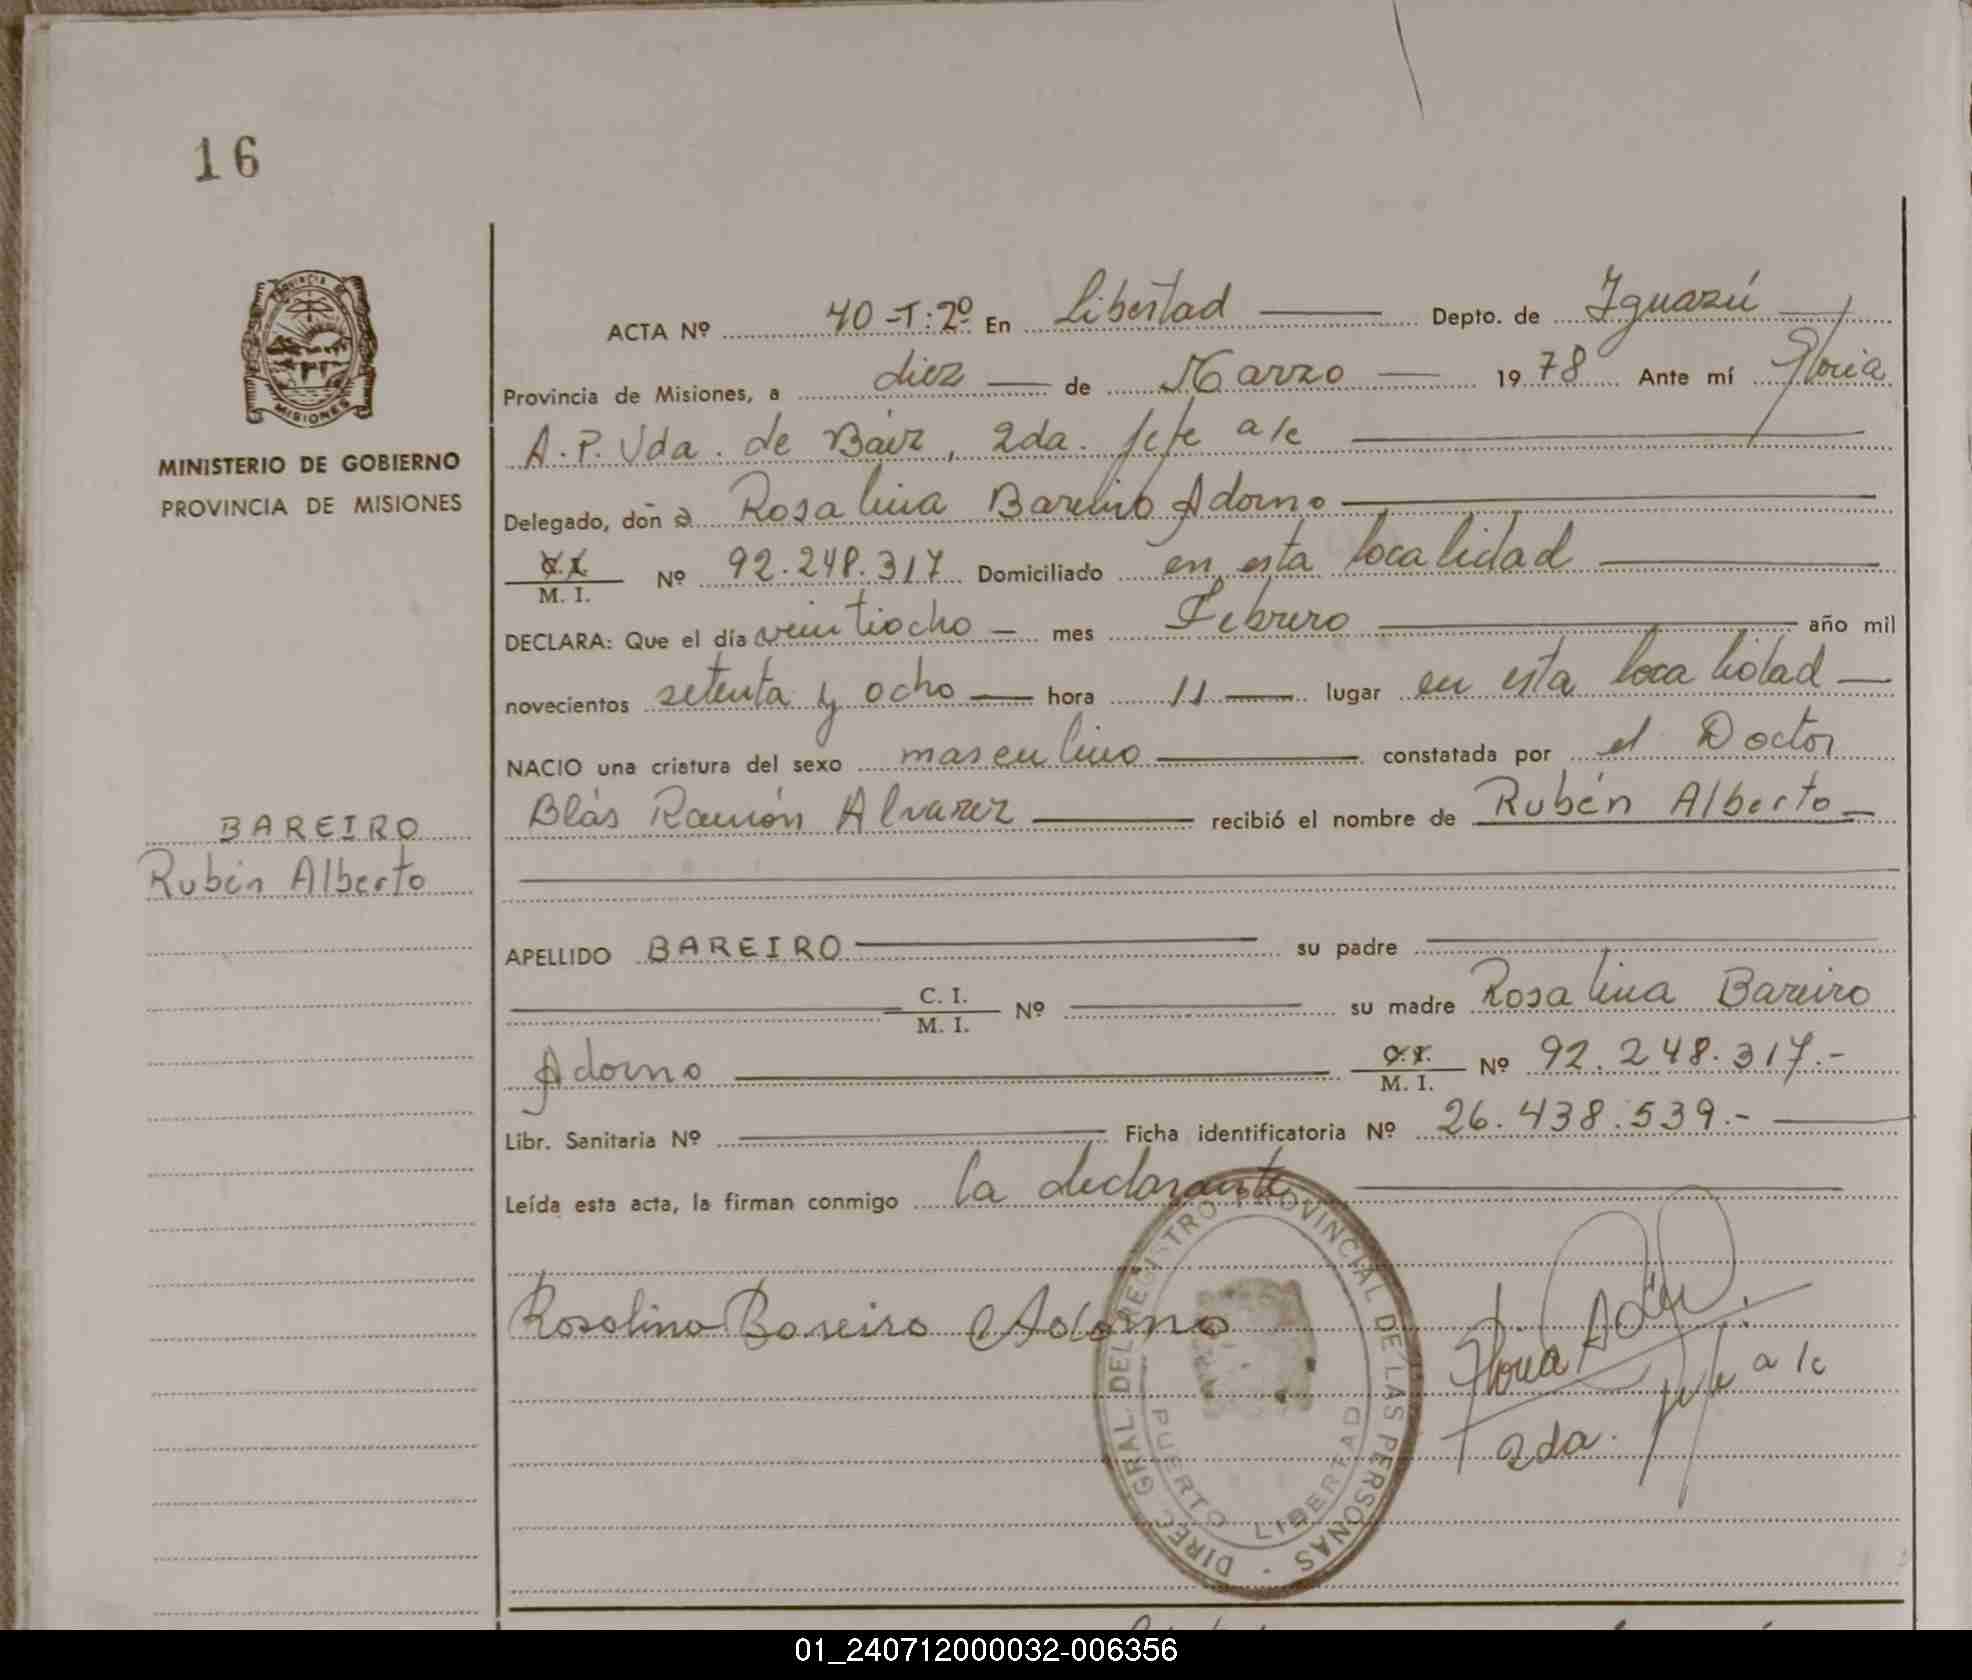 16
PROVINCIA DE
MISIONES
MINISTERIO DE GOBIERNO
PROVINCIA DE MISIONES
BAREIRO
Rubén Alberto
ACTA Nº 40-T:2º En Libertad Depto. de Iguazú
Provincia de Misiones, a diez de Marzo 1978 Ante mí Gloria
A.P. Vda. de Báez, 2da. Jefe a/c
Delegado, don a Rosalina Bareiro Adorno
C. I.
M. I. Nº 92.248.317 Domiciliado en esta localidad
DECLARA: Que el día veintiocho — mes Febrero año mil
novecientos setenta y ocho — hora 11 — lugar en esta localidad —
NACIO una criatura del sexo masculino constatada por el Doctor
Blás Ramón Alvarez recibió el nombre de Rubén Alberto —
APELLIDO BAREIRO su padre
C. I.
M. I. Nº su madre Rosalina Bareiro
Adorno C. I.
M. I. Nº 92.248.317.-
Libr. Sanitaria Nº Ficha identificatoria Nº 26.438.539.-
Leída esta acta, la firman conmigo la declarante
Rosalina Bareiro Adorno
Gloria
2da. Jefe a/c
DIREC. GRAL. DEL REGISTRO PROVINCIAL DE LAS PERSONAS
PUERTO LIBERTAD
01_240712000032-006356